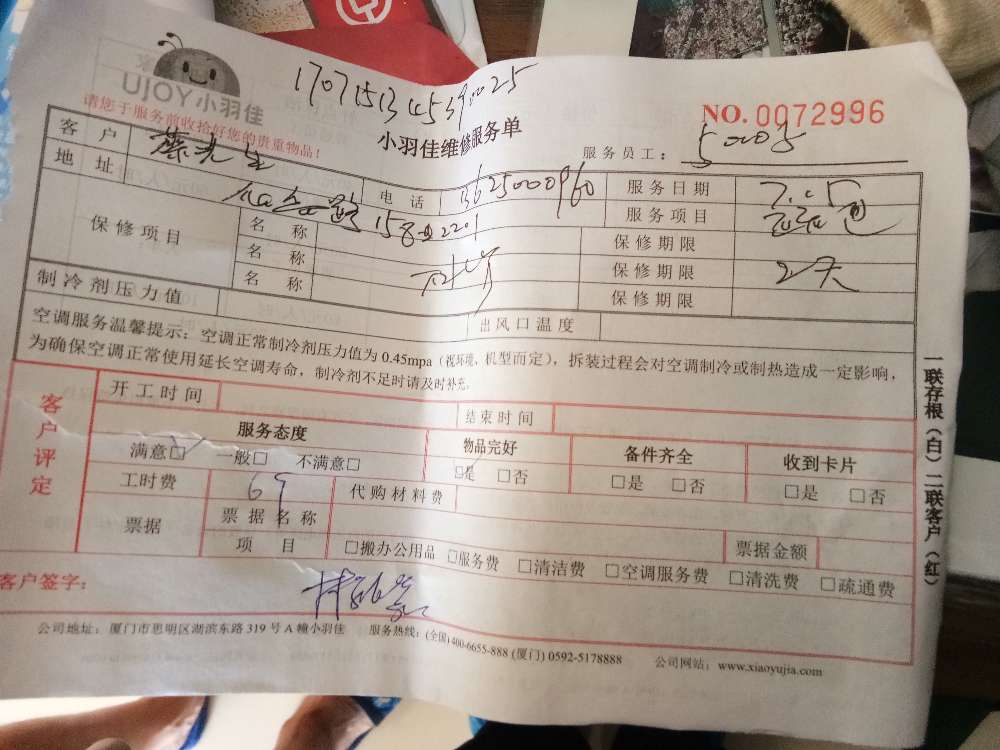 UJOY小羽佳
1707151345390025
NO.0072996
请您于服务前收拾好您的贵重物品！
小羽佳维修服务单
服务员工：
客户 蔡先生 电话 服务日期 7.25
地址 158 2201 服务项目
保修项目 名称 保修期限
名称 保修期限 2天
名称 保修期限
制冷剂压力值 出风口温度
空调服务温馨提示：空调正常制冷剂压力值为0.45mpa（祝环境，机型而定），拆装过程会对空调制冷或制热造成一定影响，
为确保空调正常使用延长空调寿命，制冷剂不足时请及时补充。
客户评定
开工时间 结束时间
服务态度 物品完好 备件齐全 收到卡片
满意□ 一般□ 不满意□ □是 □否 □是 □否 □是 □否
工时费 69 代购材料费
票据 票据名称 票据金额
项目 □搬办公用品 □服务费 □清洁费 □空调服务费 □清洗费 □疏通费
客户签字：
公司地址：厦门市思明区湖滨东路319号A幢小羽佳 服务热线：(全国)400-6655-888 (厦门) 0592-5178888 公司网站：www.xiaoyujia.com
一联存根（白）二联客户（红）